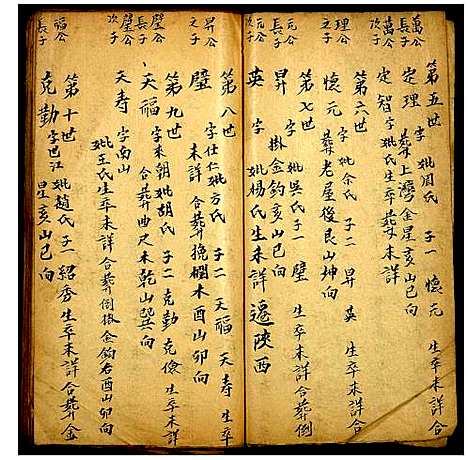 萬公長子
萬公次子
第五世
定理 字 妣周氏 子一 懷元 生卒未詳合
葬上灣金星亥山巳向
定智 字 妣氏生卒葬未詳
理公之子
第六世
懷元 字 妣余氏 子二 昇 英 生卒未詳合
葬老屋後艮山坤向
元公長子
元公次子
第七世
昇 字 妣吳氏子一 璧 生卒未詳合葬倒
掛金鈎亥山巳向
英 字 妣楊氏生未詳 遷陝西
昇公之子
第八世
璧 字仕仁妣方氏 子二 天福 天寿 生卒
未詳 合葬挽欄木酉山卯向
璧公長子
璧公次子
第九世
天福 字來朝妣胡氏 子二 克勤 克儉 生卒未詳
合葬曲尺未乾山巽向
天寿 字南山
妣王氏生卒未詳合葬倒掛金鈎右酉山卯向
福公長子
第十世
克勤 字巴江妣趙氏 子一 紹秀 生卒未詳合葬金
星亥山巳向